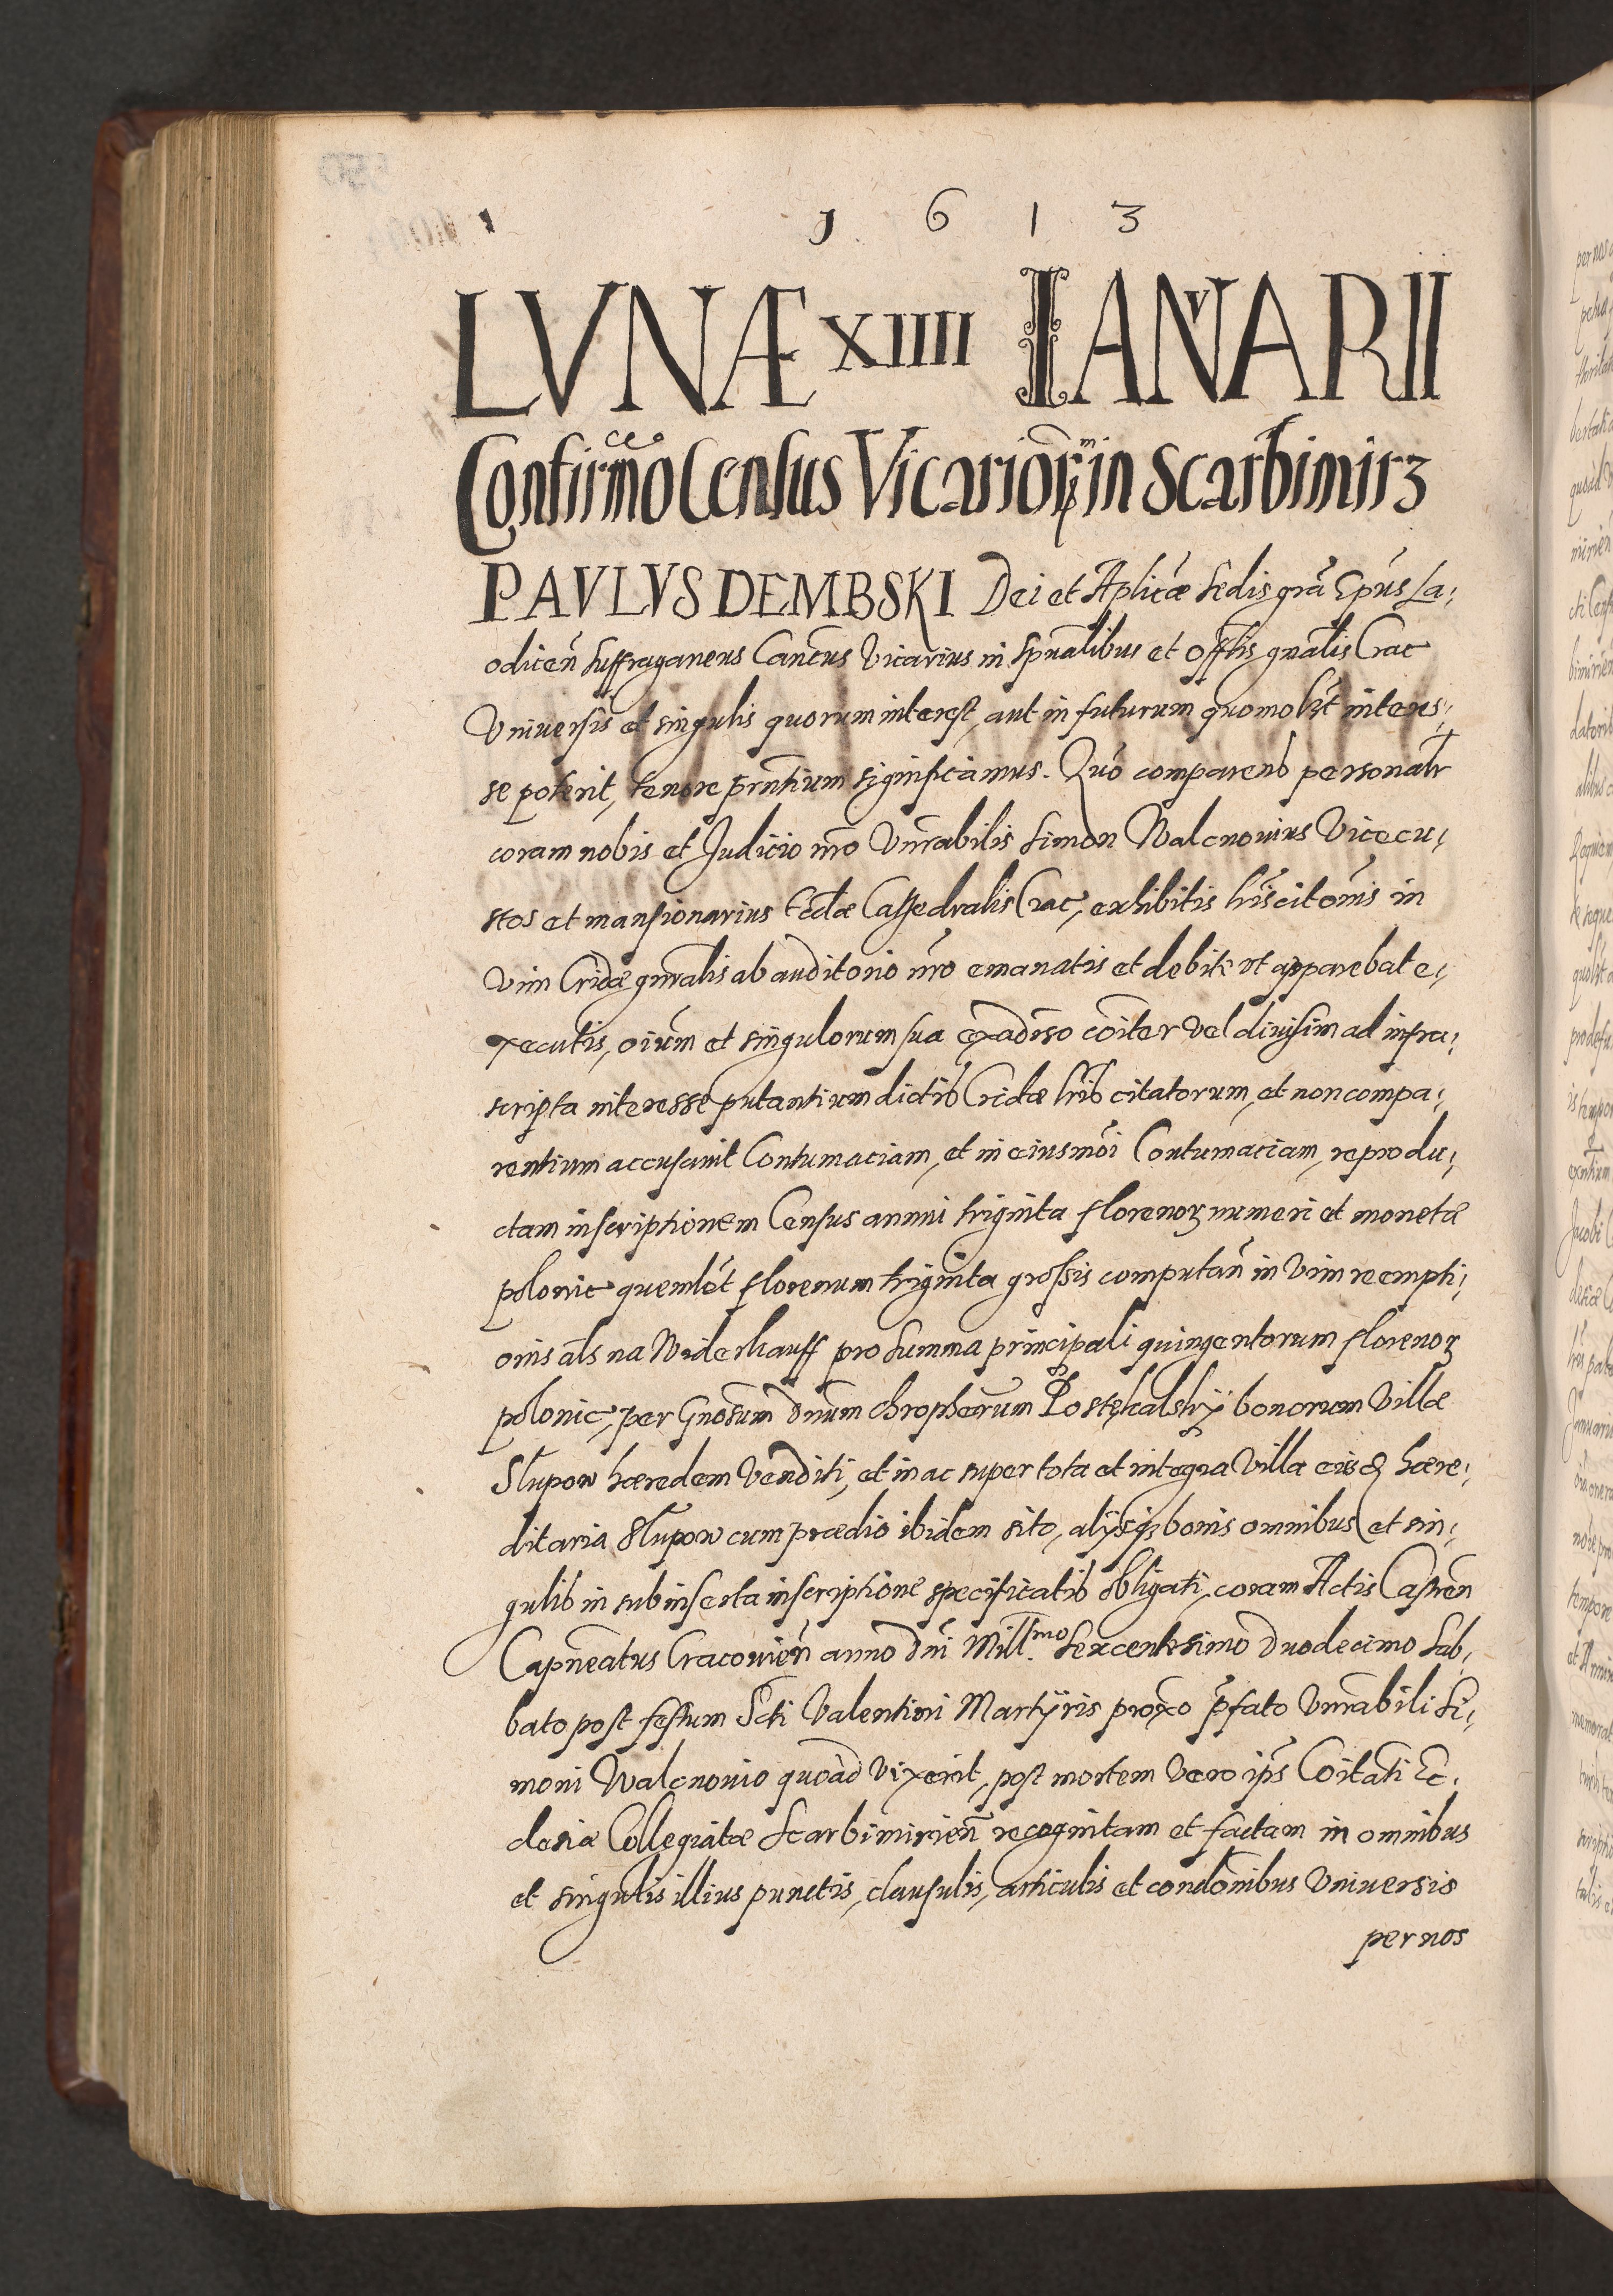 1 6 1 3
LVNÆ XIIII IANVARII
Confirmõ Census Vicarioꝝ in Scarbimirz
PAVLVS DEMBSKI Dei et Aplicæ Sedis grã Epũs La,
odiceñ Suffraganeus Cancus Vicarius in Spũalibus et Offtis gnãlis Crac
Vniuersis et singulis quorum interest, aut in futurum quomolꝫt interes,
se poterit, tenore pñtium significamus. Quo comparens personalr
coram nobis et Judicio nrõ Vnrãbilis Simon Walcnouius Vicecu,
stos et mansionarius Ecclæ Cathedralis Crac, exhibitis lrĩs citõnis in
vim Cridæ gnrãlis ab auditorio nrõ emanatis et debite vt apparebat e,
xecutis, oium et singulorum sua coiter vel diuisim ad infra,
scripta interesse putantium dictis Cridæ lrĩs citatorum, et non compa,
rentium accusauit Contumaciam, et in eiusmõi Contumaciam, reprodu,
ctam inscriptionem Census annui triginta florenoꝝ numeri et monetæ
polonic quemlꝫt florenum triginta grossis computañ in vim reempti,
onis als na Widerkauff pro summa principali quingentorum florenoꝝ
polonic, per Gnõsum Dnũm Chropherum Postękalskÿ bonorum villæ
Slupow hæredem venditi, et in ac super tota et integra villa eius hære,
ditaria Slupow cum prædio ibidem sito, alÿsqꝫ bonis omnibus et sin,
gulis in subinserta inscriptione specificatis obligati, coram Actis Castreñ
Capneatus Cracouieñ anno Dnĩ Mill.mo Sexcentesimo Duodecimo Sab,
bato post festum Scti Valentini Martÿris proxo p̃fato Vnrãbili Si,
moni Walcnouio quoad vixerit, post mortem vero ips Coitati Ec,
clesiæ Collegiatæ Scarbimirieñ recognitam et factam in omnibus
et singulis illius punctis, clausulis, articulis et condonibus Vniuersis
per nos